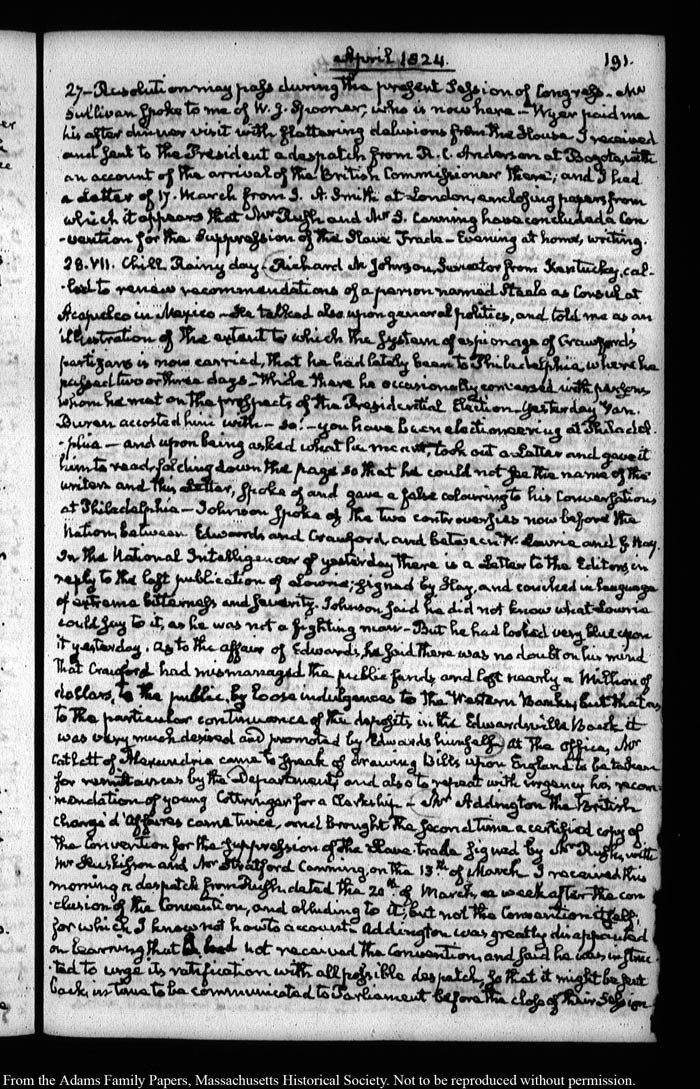 April 1824.
191.
27 — Resolution may pass during the present Session of Congress — Mr
Sullivan spoke to me of W. J. Spooner, who is now here — Wyer paid me
his after dinner visit with flattering delusions from the House. I received
and sent to the President a despatch from R. C. Anderson at Bogota, with
an account of the arrival of the British Commissioner there; and I had
a Letter of 17. March from J. A. Smith at London, enclosing papers from
which it appears that Mr Rush and Mr S. Canning have concluded a Con
-vention for the suppression of the Slave Trade — Evening at home, writing.
28. VII. Chill Rainy day — Richard M Johnson, Senator from Kentucky, cal-
-led to renew recommendations of a person named Steele as Consul at
Acapulco in Mexico — He talked also upon general politics, and told me as an
illustration of the extent to which the system of espionage of Crawford's
partizans is now carried, that he had lately been to Philadelphia, where he
passed two or three days — While there he occasionally conversed with persons
whom he met on the prospects of the Presidential Election — Yesterday Van.
Buren accosted him with — so! — you have been electioneering at Philadel-
-phia — and upon being asked what he meant, took out a Letter and gave it
him to read, folding down the page so that he could not see the name of the
writer, and this Letter, spoke of and gave a false colouring to his Conversations
at Philadelphia — Johnson spoke of the two controversies now before the
Nation, between Edwards and Crawford, and between W. Lowrie and G. Hay.
In the National Intelligencer of yesterday there is a Letter to the Editors, in
reply to the last publication of Lowrie, signed by Hay, and couched in language
of extreme bitterness and severity. Johnson said he did not know what Lowrie
could say to it, as he was not a fighting man — But he had looked very blue upon
it yesterday. As to the affair of Edwards, he said there was no doubt on his mind
that Crawford had mismanaged the public funds, and lost nearly a Million of
dollars, to the public, by loose indulgences to the Western Banks, but that as
to the particular continuance of the deposits, in the Edwardsville Bank it
was very much desired and promoted by Edwards himself. At the Office, Mr
Cathett of Alexandria came to speak of drawing Bills upon England to be taken
for remittances by the Department, and also to repeat with urgency his recom-
-mendation of young Cottringer for a Clerkship — Mr Addington the British
Chargé d'Affaires came twice, and brought the second time a certified copy of
the Convention for the suppression of the Slave trade signed by Mr Rush, with
Mr Huskisson and Mr Stratford Canning, on the 13th of March I received this
morning a despatch from Rush, dated the 20th of March, a week after the con
-clusion of the Convention, and alluding to it, but not the Convention itself,
for which I know not how to account — Addington was greatly disappointed
on learning that I had not received the Convention, and said he was instruc-
-ted to urge its ratification with all possible despatch, so that it might be sent
back, in time to be communicated to Parliament before the close of their Session
From the Adams Family Papers, Massachusetts Historical Society. Not to be reproduced without permission.